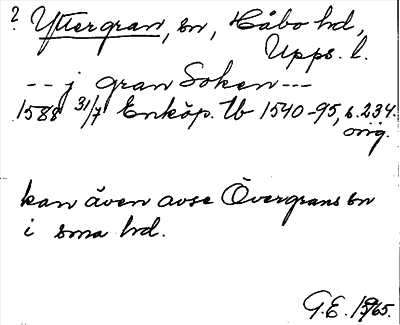 ? Yttergran, sn, Håbo hd,
Upps. l.
-- j gran Soken ---
1588 31/7 Enköp. tb 1540-95, s. 234.
orig.
kan även avse Övergrans sn
i sma hd.
G.E. 1965.